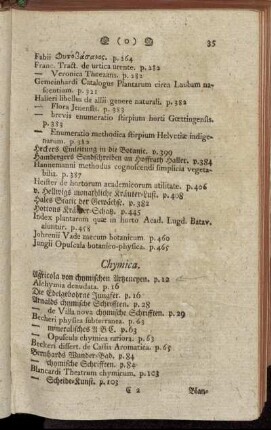 ( o ) 35
Fabii Φυτοβάσανος. p. 264
Franc. Tract. de urtica urente. p. 282
— Veronica Theezans. p. 282
Gemeinhardi Catalogus Plantarum circa Laubam na-
scentium. p. 321
Halleri libellus de allii genere naturali. p. 382
— Flora Jenensis. p. 383
— brevis enumeratio stirpium horti Gœttingensis.
p. 383
— Enumeratio methodica stirpium Helvetiæ indige-
narum. p. 382
Heckers Einleitung in die Botanic. p. 399
Hambergers Sendschreiben an Hoffrath Haller. p. 384
Hannemanni methodus cognoscendi simplicia vegeta-
bilia. p. 387
Heister de hortorum academicorum utilitate. p. 406
v. Hellwigs monathliche Kräuterlust. p. 408
Hales Static der Gewächse. p. 382
Hottons Kräuter-Schatz. p. 445
Index plantarum quæ in horto Acad. Lugd. Batav.
aluntur. p. 458
Johrenii Vade mecum botanicum. p. 460
Jungii Opuscula botanico-physica. p. 465
Chymica.
Agricola von chymischen Artzeneyen. p. 12
Alchymia denudata. p. 16
Die Edelgebohrne Jungfer. p. 16
Arnalds chymische Schrifften. p. 28
— de Villa nova chymische Schrifften. p. 29
Becheri physica subterranea. p. 63
— mineralisches A B C. p. 63
— Opuscula chymica rariora. p. 63
Beckeri dissert. de Cassis Aromatica. p. 65
Bernhards Wunder-Bad. p. 84
— chymische Schrifften. p. 84
Blancardi Theatrum chymicum. p. 103
— Scheide-Kunst. p. 103
C 2 Blan-